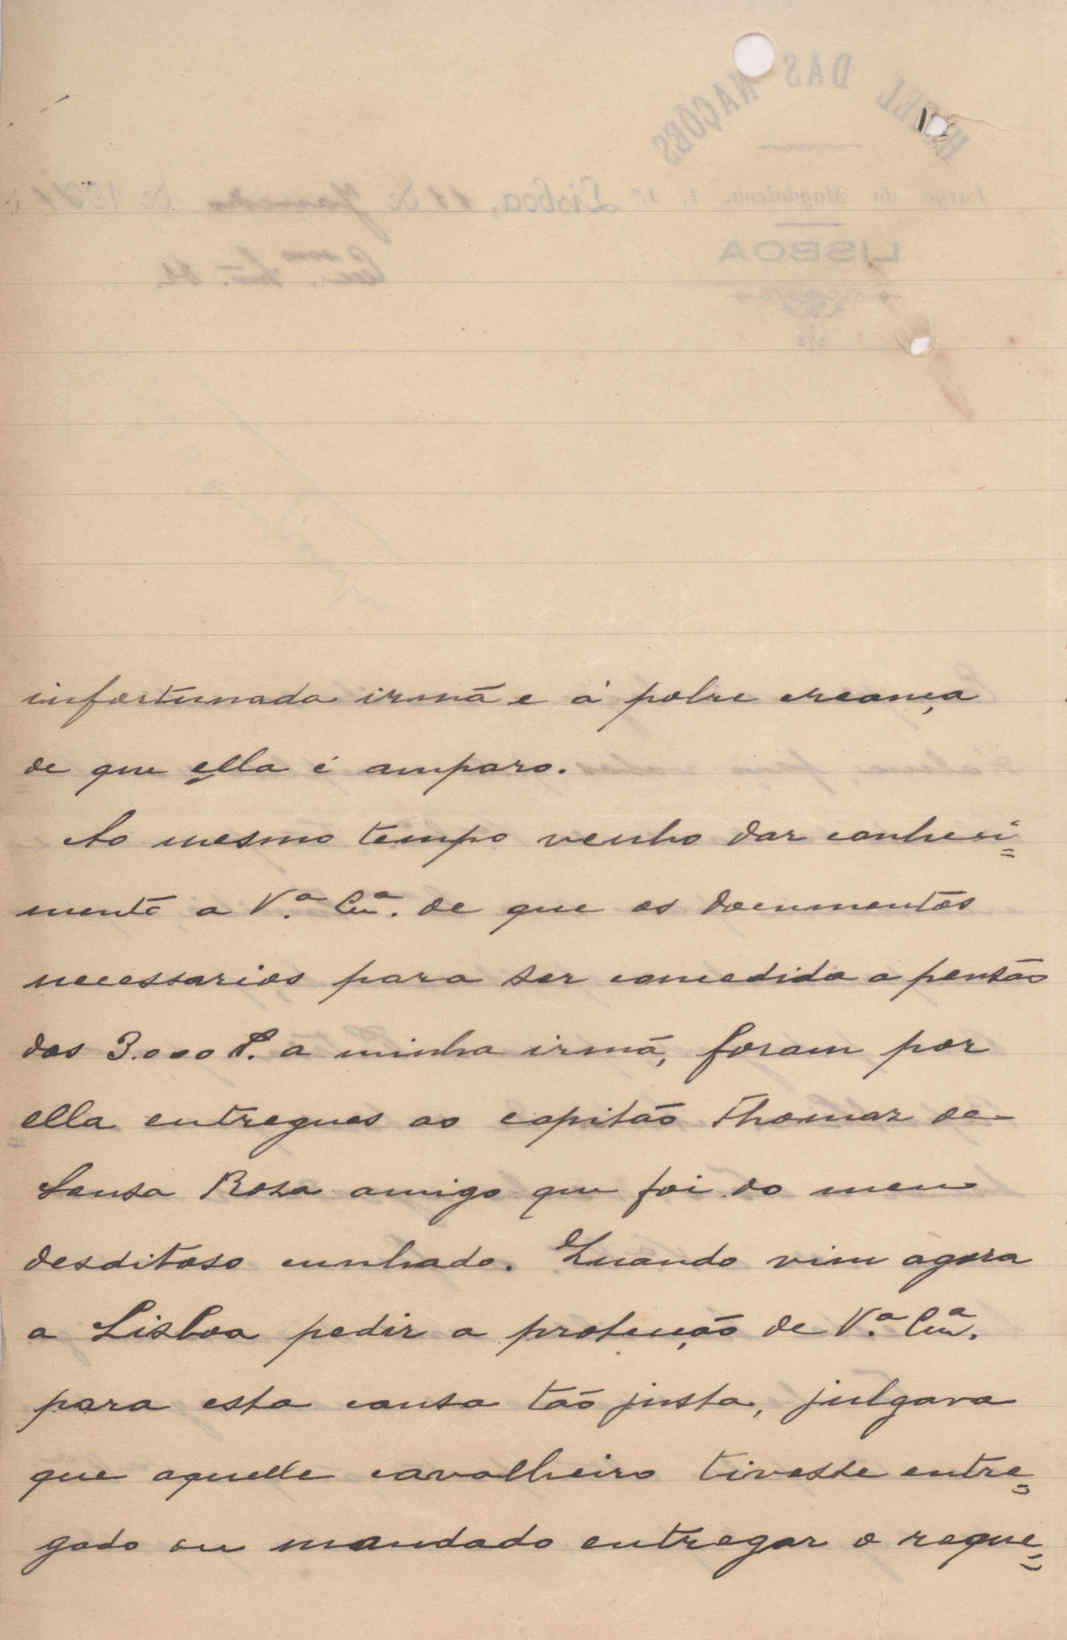 HOTEL DAS NAÇÕES
Largo da Magdalena, 1, 1.º Lisboa, 11 de Janeiro de
LISBOA
infortunada irmã e á pobre creança
de que ella é amparo.
Ao mesmo tempo venho dar conheci=
mento a V.ª Ex.ª de que os documentos
necessarios para ser concedida a pensão
dos 3.000 P. a minha irmã, foram por
ella entregues ao capitão Thomaz de
Sousa Rosa amigo que foi do meu
desditoso cunhado. Quando vim agora
a Lisboa pedir a protecção de V.ª Ex.ª
para esta causa tão justa, julgava
que aquelle cavalheiro tivesse entre=
gado ou mandado entregar o reque=